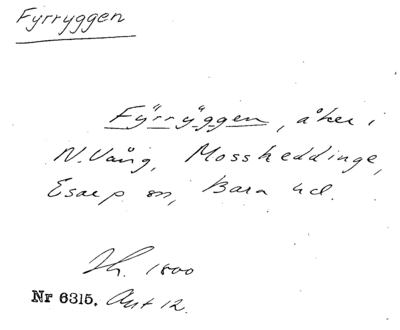 Fyrryggen
Fÿrrÿggen, åker i
N. Vång, Mossheddinge,
Esarp sn, Bara hd.
1800
Nr 6315. Akt 12.